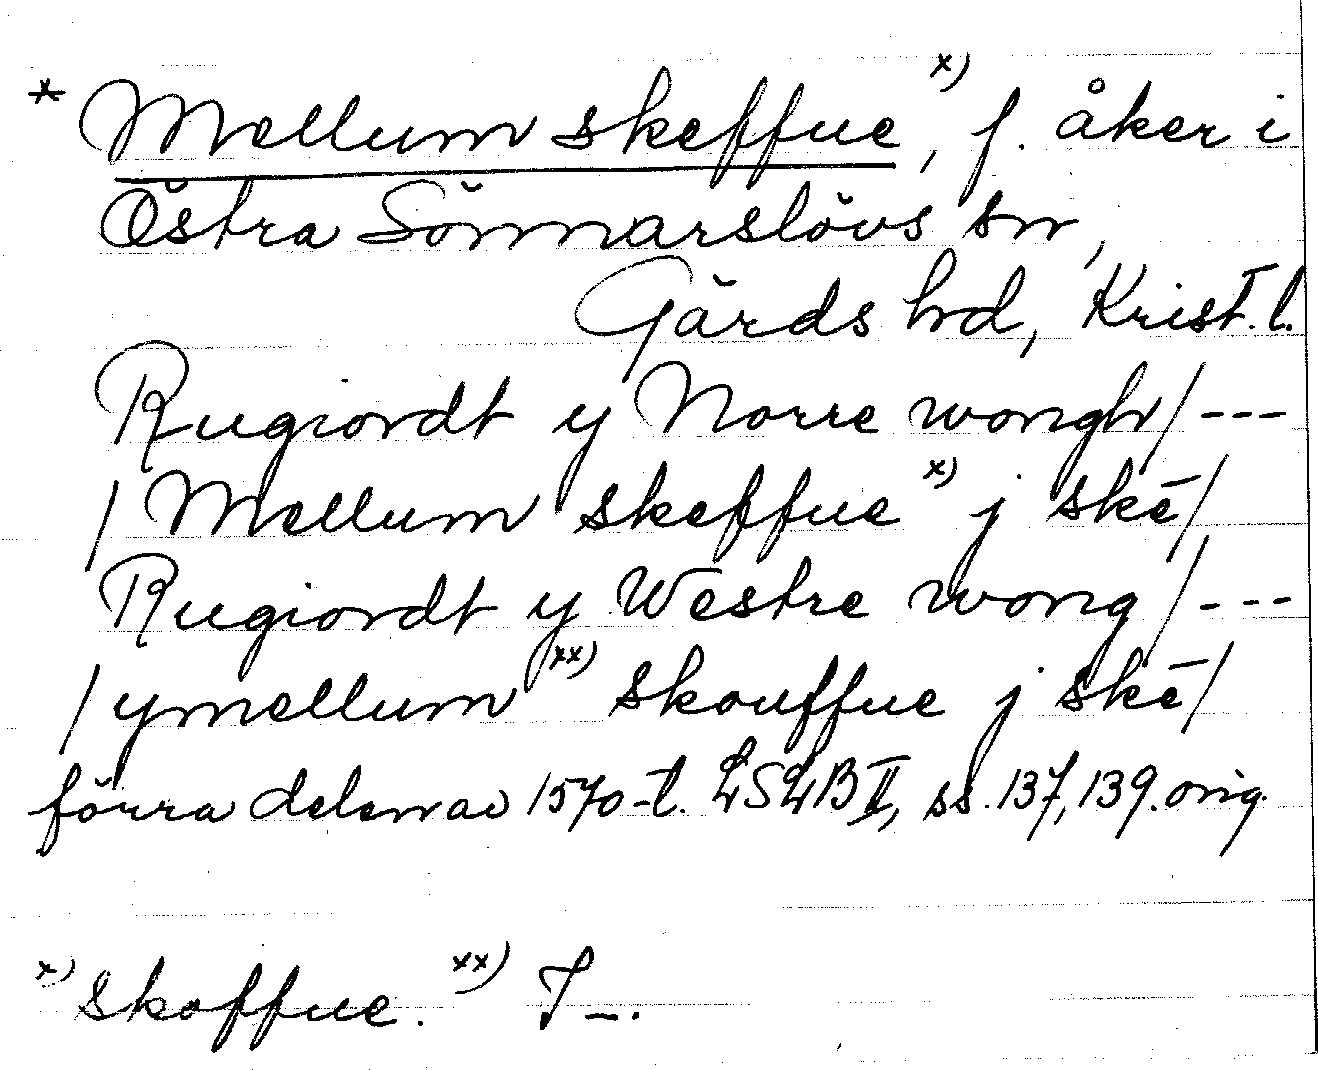 * Mellum skeffue x), f. åker i
Östra Sönnarslövs sn,
Gärds hd, Krist. l.
Rugiordt y Norre wongh/---
/Mellum skeffue x) j skē/
Rugiordt y Westre wong/---
/ymellum xx) skouffue j skē/
förra delen av 1570-t. LSLB II, ss. 137, 139. orig.
x) skoffue. xx) J-.